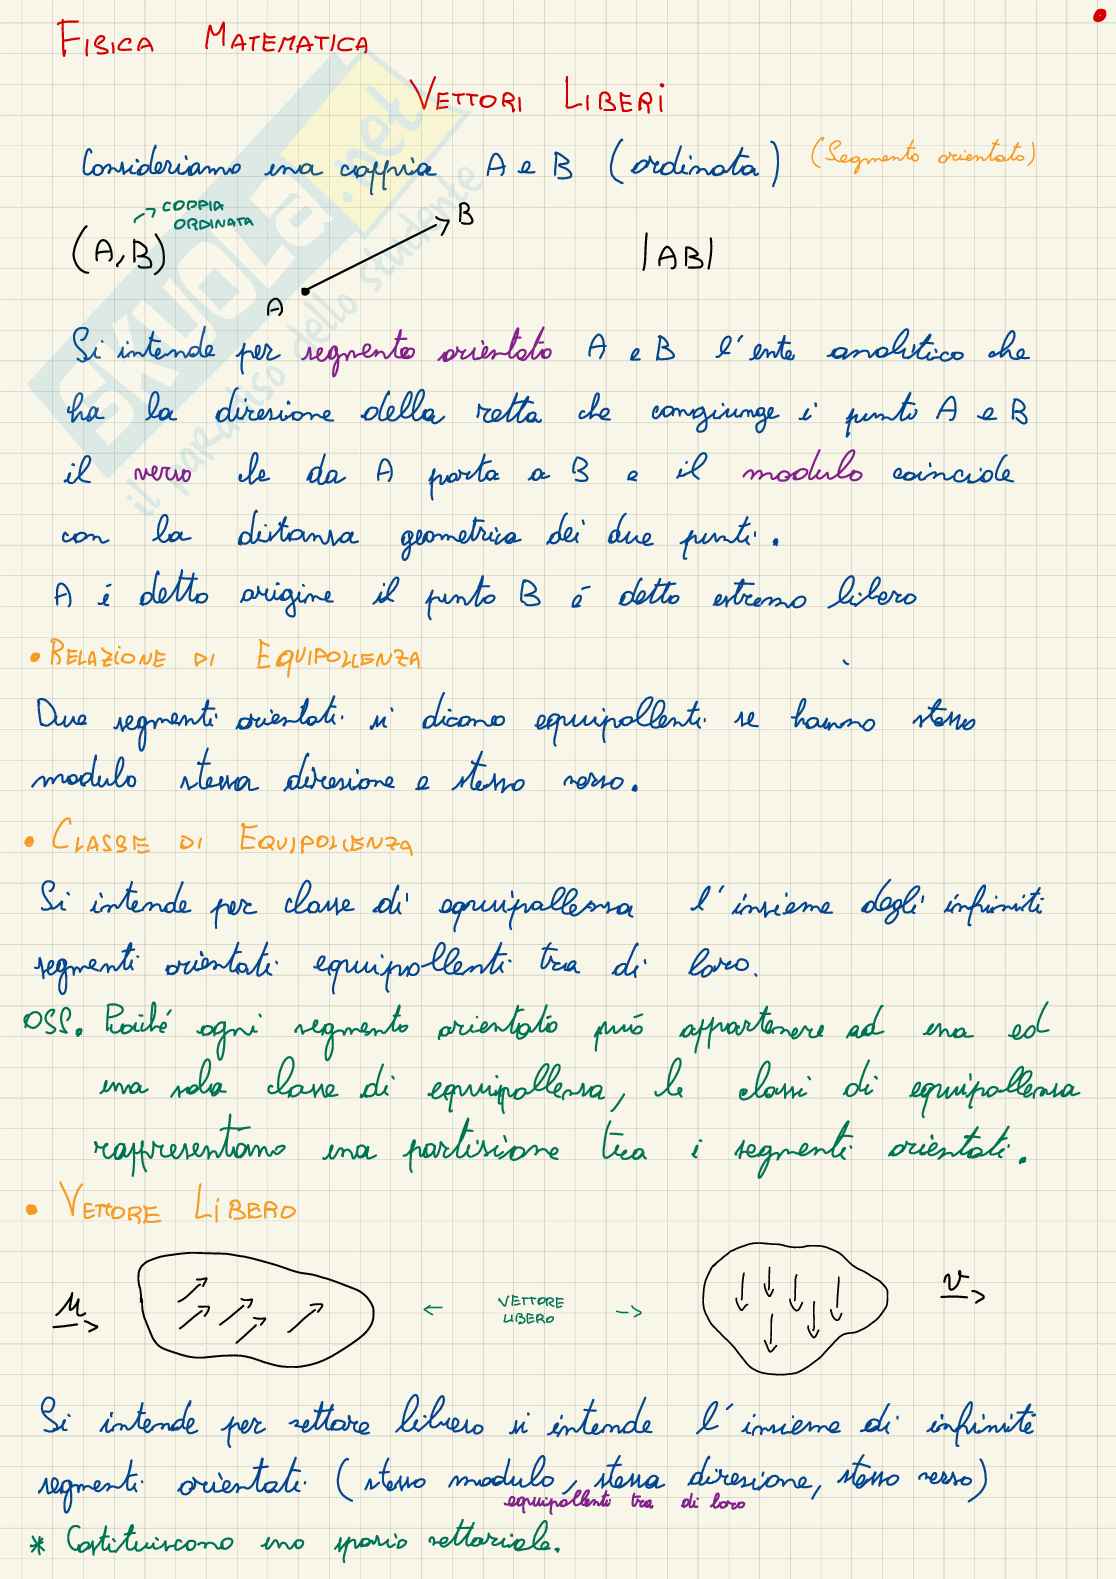 FISICA MATEMATICA
VETTORI LIBERI
Consideriamo una coppia A e B (ordinata) (Segmento orientato)
COPPIA
ORDINATA
(A,B)
A
B
|AB|
Si intende per segmento orientato A e B l'ente analitico che
ha la direzione della retta che congiunge i punti A e B
il verso che da A porta a B e il modulo coincide
con la distanza geometrica dei due punti.
A é detto origine il punto B é detto estremo libero
• RELAZIONE DI EQUIPOLLENZA
Due segmenti orientati si dicono equipollenti se hanno stesso
modulo stessa direzione e stesso verso.
• CLASSE DI EQUIPOLLENZA
Si intende per classe di equipollenza l'insieme degli infiniti
segmenti orientati equipollenti tra di loro.
OSS. Poiché ogni segmento orientato può appartenere ad una ed
una sola classe di equipollenza, le classi di equipollenza
rappresentano una partizione tra i segmenti orientati.
• VETTORE LIBERO
u
← VETTORE
LIBERO →
v
Si intende per vettore libero si intende l'insieme di infiniti
segmenti orientati (stesso modulo, stessa direzione, stesso verso)
equipollenti tra di loro
* Costituiscono uno spazio vettoriale.
SKUOLA.net
il paradiso dello studente